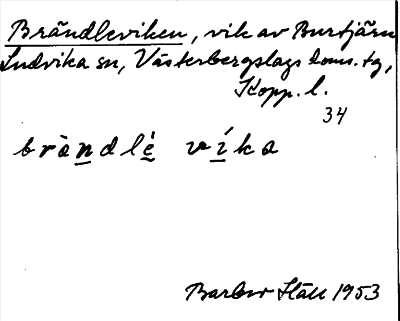 Brändleviken, vik av Burtjärn
Ludvika sn, Västerbergslags doms. tg,
Kopp. l.
34
brändlé víka
Barbro Ståll 1953